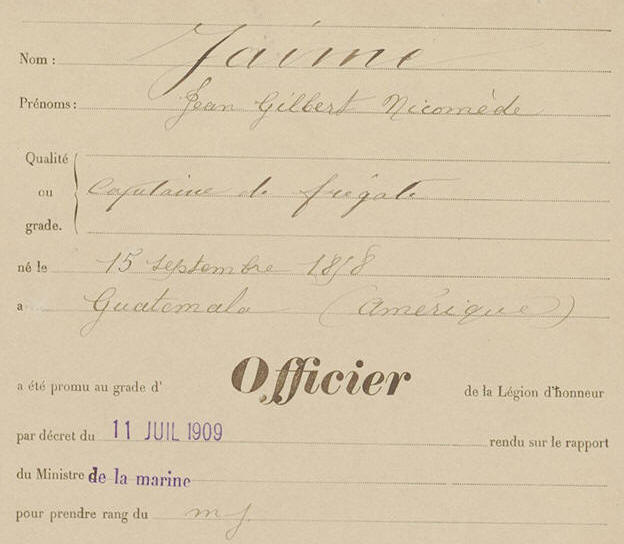 Nom : Jaime
Prénoms : Jean Gilbert Nicomède
Qualité
ou Capitaine de frégate
grade.
né le 15 septembre 1858
a Guatemala (Amérique)
a été promu au grade d' Officier de la Légion d'honneur
par décret du 11 JUIL 1909 rendu sur le rapport
du Ministre de la marine
pour prendre rang du m j.